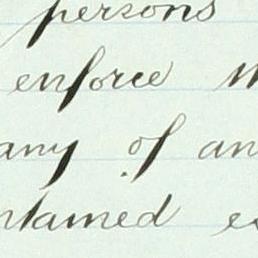 persons
enforce
any of an
ntained es